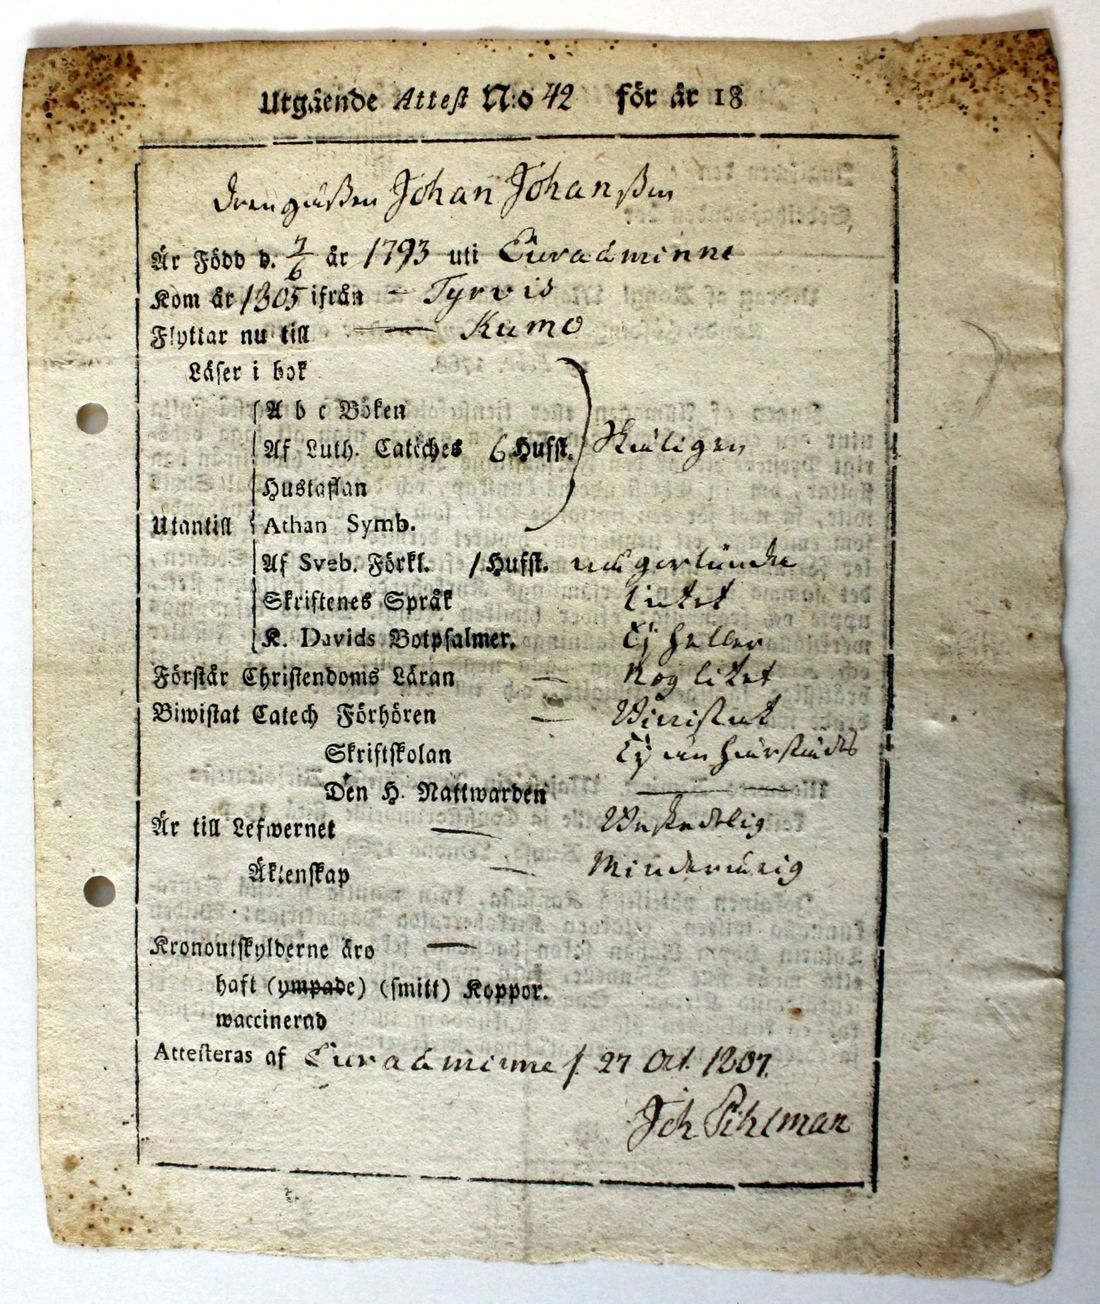 Utgående Attest N:o 42 för år 18
Drenggåssen Johan Johansson
Är Född d. 7/6 år 1793 uti Euraåminne
Kom år 1805 ifrån – Tyrvis
Flyttar nu till — Kumo
Läser i bok
A b c Boken
Af Luth. Catéches 6 Hufst. Skäligen
Hustaflan
Utantill Athan Symb.
Af Sveb. Förkl. 1 Hufst. någorlunda
Skriftenes Språk Intet
K. Davids Botpsalmer. Ej heller
Förstår Christendoms Läran — Nog litet
Biwistat Catech Förhören — Bivistat
Skriftskolan Ej
Den H. Nattwarden —
Är till Lefwernet — Oskadlig
Äktenskap — Minderårig
Kronoutskylderne äro —
haft (ympade) (smitt) Koppor.
waccinerad
Attesteras af Euraåminne d. 27 Oct. 1807.
Joh Pihlman